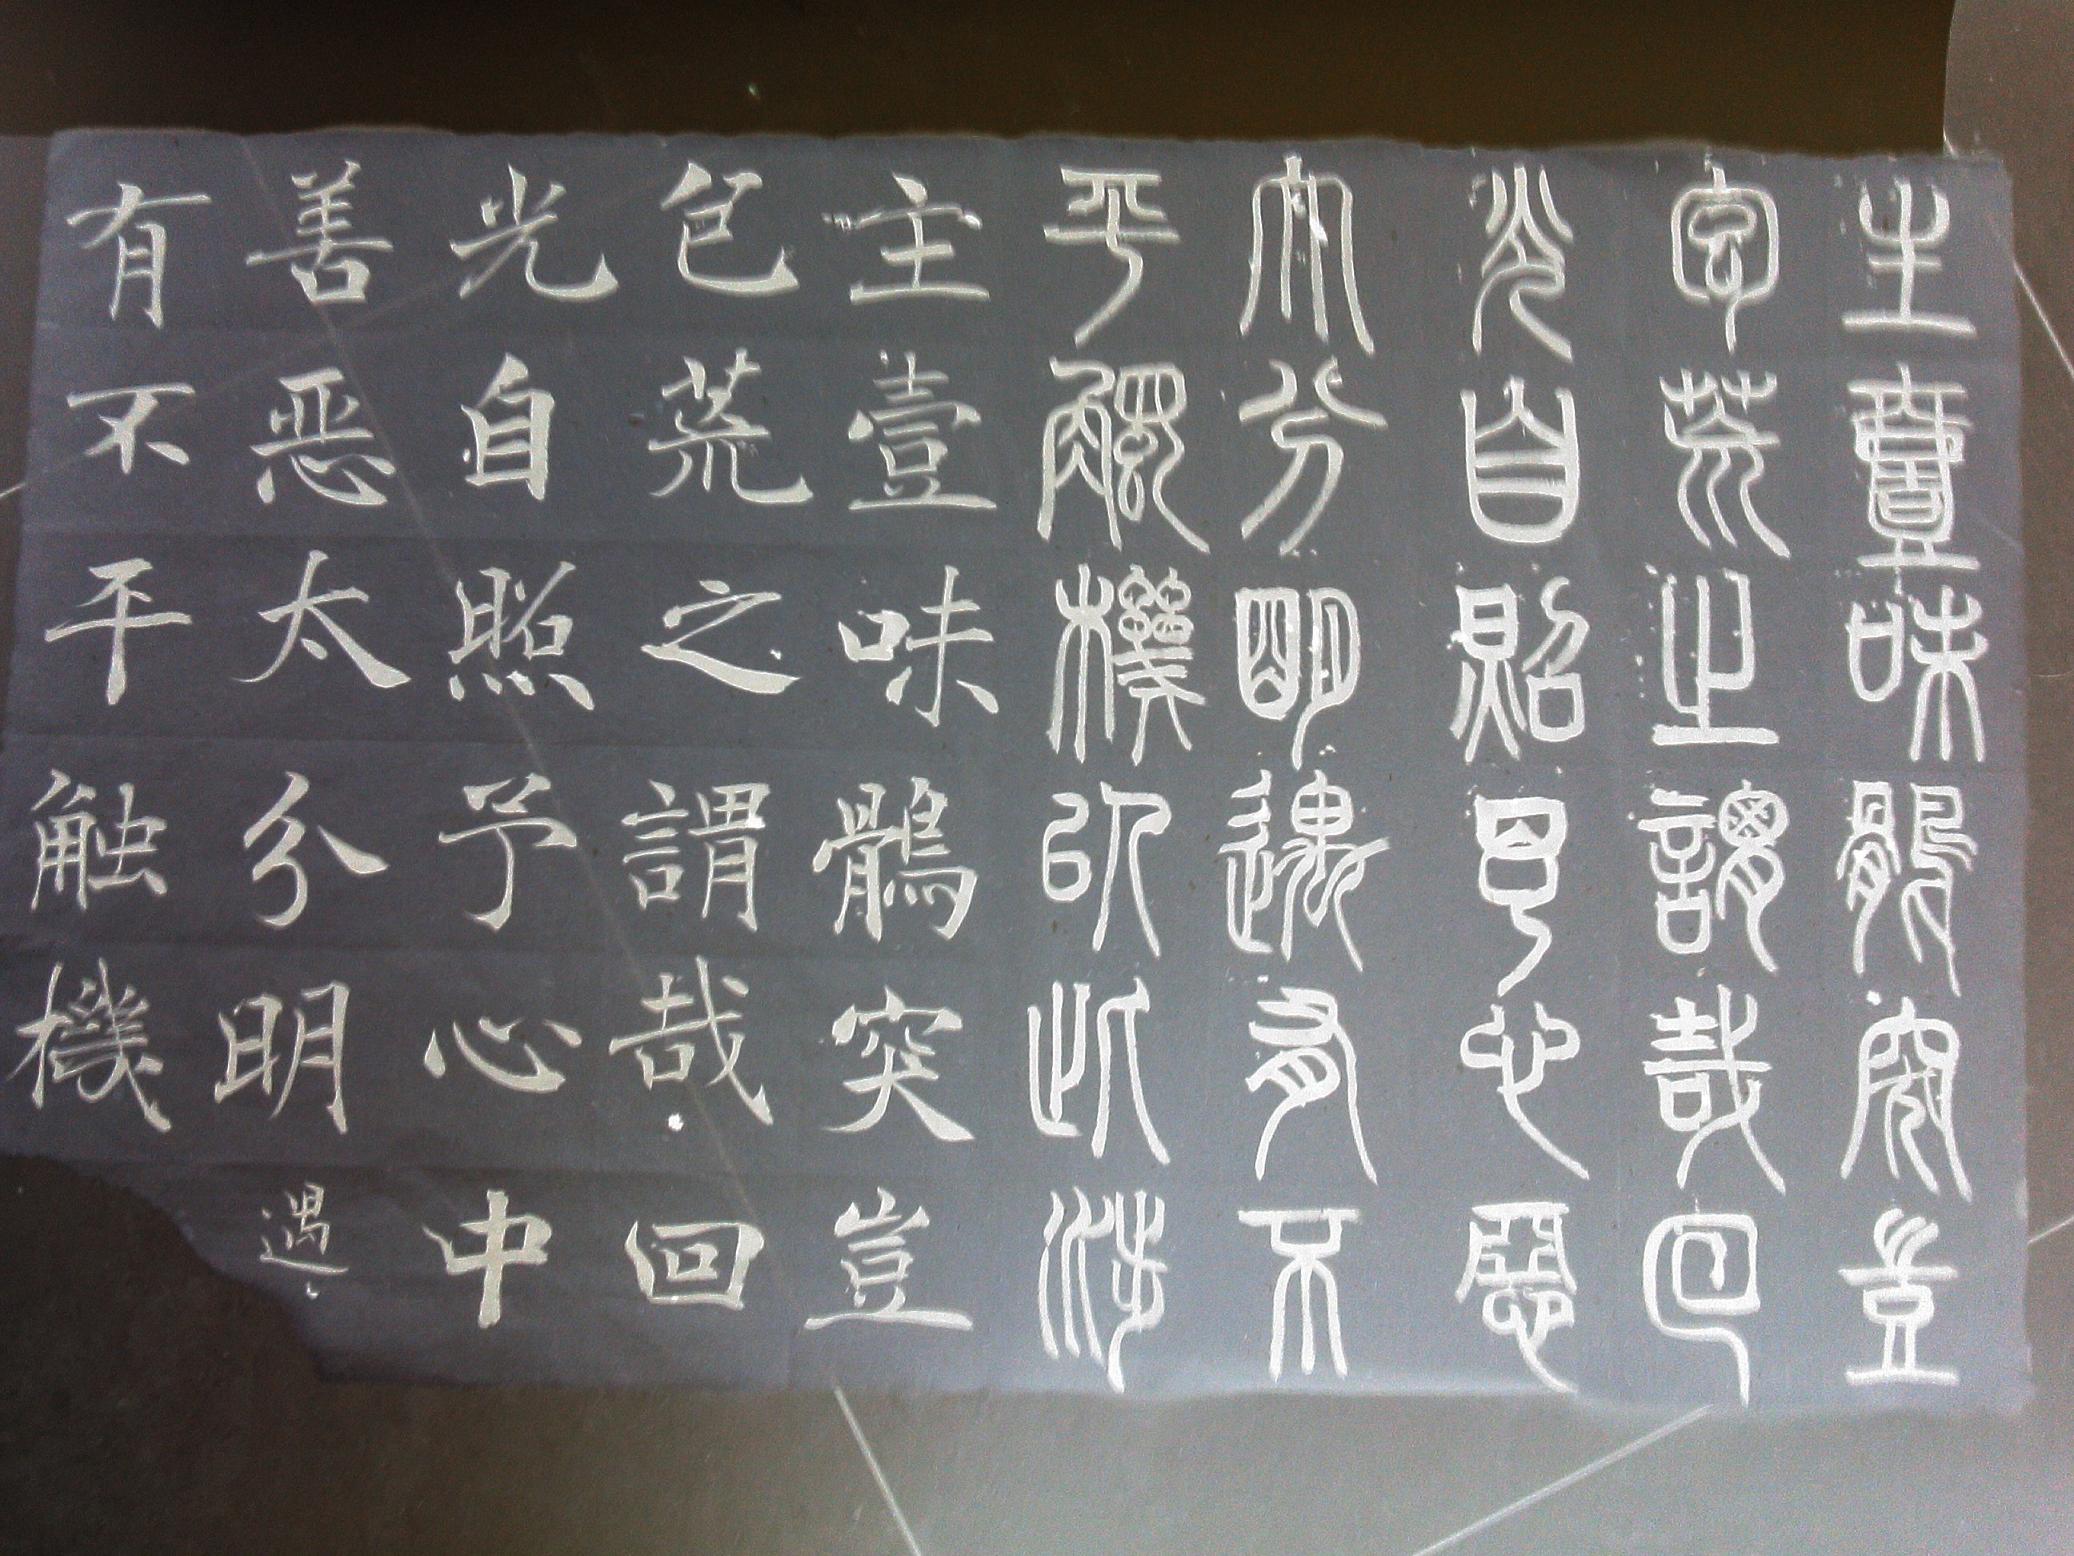 主壹味鶻突豈
包荒之謂哉回
光自照予心惡
太分明遇有不
平觸機即此涉
主壹味鶻突豈
包荒之謂哉回
光自照予心中
善恶太分明遇
有不平触機